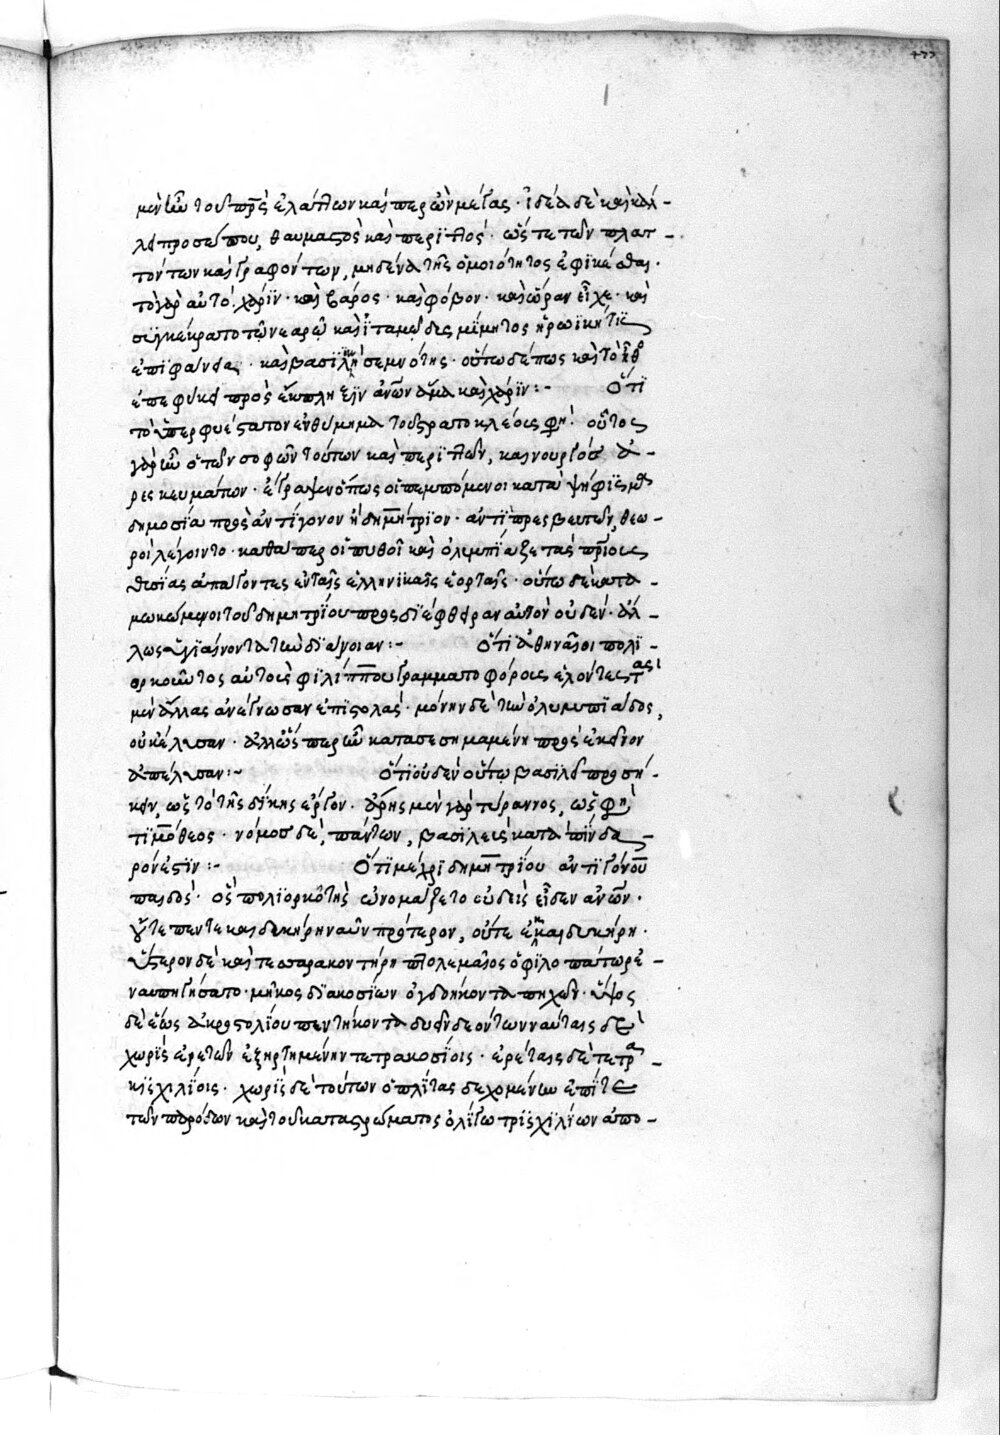 μὲν ἦν τοῦ πρς ἐλάττων καίπερ ὢν μέγας· ἰδέα δὲ καὶ κάλ-
λει προσώπου, θαυμαστὸς καὶ περιττός· ὥστε τῶν πλατ-
τόντων καὶ γραφόντων, μηδένα τῆς ὁμοιότητος ἐφικέσθαι.
τὸ γὰρ αὐτὸ χάριν· καὶ βάρος· καὶ φόβον· καὶ ὥραν εἶχε· καὶ
συγκέκρατο τῷ νεαρῷ καὶ ἰταμῷ δυσμίμητος ἡρωική τις
ἐπιφάνεια· καὶ βασιλικὴ σεμνότης· οὕτω δέ πως καὶ τὸ ἦθο
ἐπεφύκει πρὸς ἔκπληξιν ἀνων ἅμα καὶ χάριν:- Ὅτι
τὸ ὑπερφυέστατον ἐνθύμημα τοῦ στρατοκλέους φη· οὗτος
γὰρ ἦν ὁ τῶν σοφῶν τούτων καὶ περιττῶν, καινουργὸς ἀ-
ρεσκευμάτων· ἔγραψεν ὅπως οἱ πεμπόμενοι κατὰ ψήφισμα
δημοσίᾳ πρὸς ἀντίγονον ἢ δημήτριον· ἀντὶ πρεσβευτῶν, θεω-
ροὶ λέγοιντο· καθάπερ οἱ πυθοῖ καὶ ὀλυμπίαζε τὰς πρίους
θυσίας ἀπάγοντες ἐν ταῖς ἑλληνικαῖς ἑορταῖς· οὕτω δὲ κατα-
μωκώμενοι τοῦ δημητρίου προς διέφθειραν αὐτὸν οὐδὲν· ἀλ-
λως ὑγιαίνοντα τὴν διάνοιαν:- Ὅτι ἀθηναῖοι πολι-
ορκοῦντος αὐτοὺς φιλίππου γραμματοφόρους ἑλόντες, τὰς
μὲν ἄλλας ἀνέγνωσαν ἐπιστολάς· μόνην δὲ τὴν ὀλυμπιάδος,
οὐκ ἔλυσαν· ἀλλ' ὥσπερ ἦν κατασεσημαμένη πρὸς ἐκεῖνον
ἀπέλυσαν:- Ὅτι οὐδὲν οὕτω βασιλεῖ προσή-
κειν, ὡς τὸ τῆς δίκης ἔργον· ἄρης μὲν γὰρ τύραννος, ὥς φη,
τιμόθεος· νόμος δὲ, πάντων, βασιλεὺς κατὰ πίνδα-
ρόν ἐστιν:- Ὅτι μέχρι δημητρίου ἀντιγόνου
παιδός· ὃς πολιορκητὴς ὠνομάζετο οὐδεὶς εἶδεν ἀνων·
οὔτε πεντεκαιδεκήρη ναῦν πρότερον, οὔτε ἑκκαιδεκήρη·
ὕστερον δὲ καὶ τεσσαρακοντήρη πτολεμαῖος ὁ φιλοπάτωρ ἐ-
ναυπηγήσατο· μῆκος διακοσίων ὀγδοήκοντα πηχῶν· ὕψος
δὲ ἕως ἀκροστολίου πεντήκοντα δυεῖν δεόντων ναύταις δὲ
χωρὶς ἐρετῶν ἐξηρτημένην τετρακοσίοις· ἐρέταις δὲ τετρα-
κισχιλίοις· χωρὶς δὲ τούτων ὁπλίτας δεχομένην ἐπί τε
τῶν παρόδων καὶ τοῦ καταστρώματος ὀλίγῳ τρισχιλίων ἀπο-